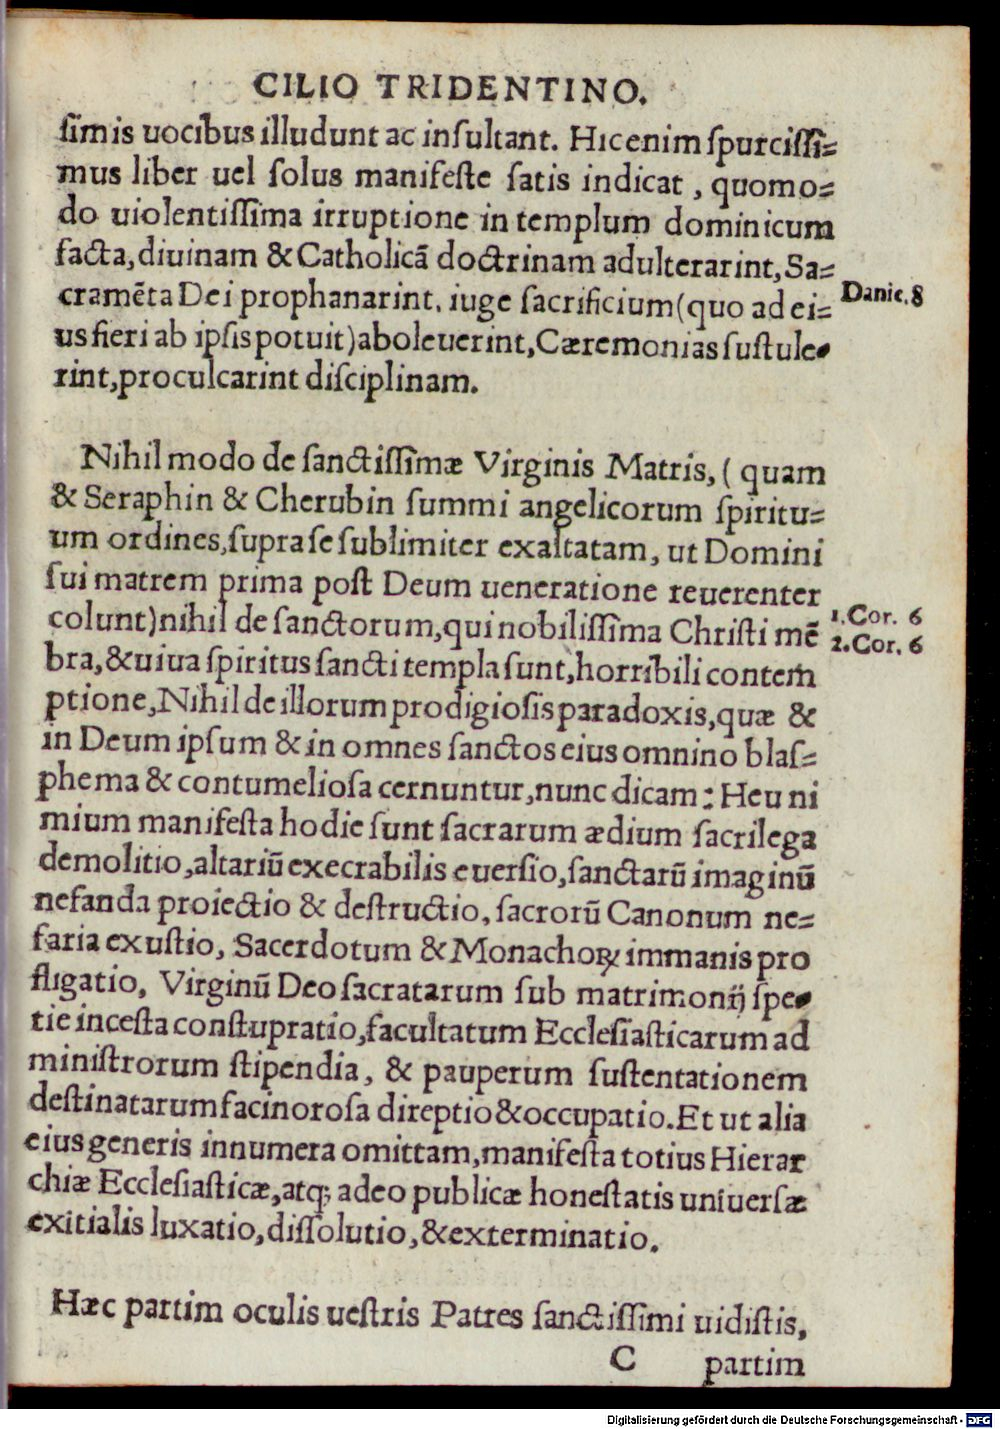 CILIO TRIDENTINO.
ſimis uocibus illudunt ac inſultant. Hic enim ſpurciſſi⸗
mus liber uel ſolus manifeſte ſatis indicat, quomo⸗
do uiolentiſſima irruptione in templum dominicum
facta, diuinam & Catholicā doctrinam adulterarint, Sa⸗
cramēta Dei prophanarint, iuge ſacrificium (quo ad ei⸗
us fieri ab ipſis potuit) aboleuerint, Cæremonias ſuſtule⸗
rint, proculcarint diſciplinam.
Danie. 8
Nihil modo de ſanctiſſimæ Virginis Matris, (quam
& Seraphin & Cherubin ſummi angelicorum ſpiritu⸗
um ordines, ſupra ſe ſublimiter exaltatam, ut Domini
ſui matrem prima poſt Deum ueneratione reuerenter
colunt) nihil de ſanctorum, qui nobiliſſima Chriſti mē
bra, & uiua ſpiritus ſancti templa ſunt, horribili contem̄
ptione, Nihil de illorum prodigioſis paradoxis, quæ &
in Deum ipſum & in omnes ſanctos eius omnino blaſ⸗
phema & contumelioſa cernuntur, nunc dicam: Heu ni
mium manifeſta hodie ſunt ſacrarum ædium ſacrilega
demolitio, altariū execrabilis euerſio, ſanctarū imaginū
nefanda proiectio & deſtructio, ſacrorū Canonum ne⸗
faria exuſtio, Sacerdotum & Monachoꝝ immanis pro
fligatio, Virginū Deo ſacratarum ſub matrimonij ſpe⸗
tie inceſta conſtupratio, facultatum Eccleſiaſticarum ad
miniſtrorum ſtipendia, & pauperum ſuſtentationem
deſtinatarum facinoroſa direptio & occupatio. Et ut alia
eius generis innumera omittam, manifeſta totius Hierar
chiæ Eccleſiaſticæ, atq; adeo publicæ honeſtatis uniuerſæ
exitialis luxatio, diſſolutio, & exterminatio.
1. Cor. 6
2. Cor. 6
Hæc partim oculis ueſtris Patres ſanctiſſimi uidiſtis,
C partim
Digitalisierung gefördert durch die Deutsche Forschungsgemeinschaft - DFG